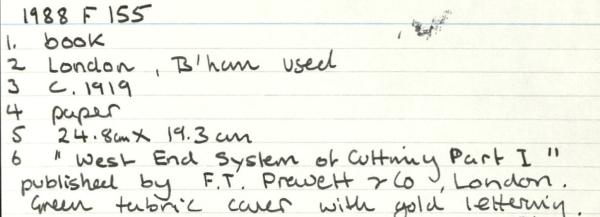 1988 F 155
1. book
2 London, B'ham used
3 c. 1919
4 paper
5 24.8cm x 19.3 cm
6 "West End System of Cutting Part I"
published by F.T. Prewett & Co, London.
Green fabric cover with gold lettering.